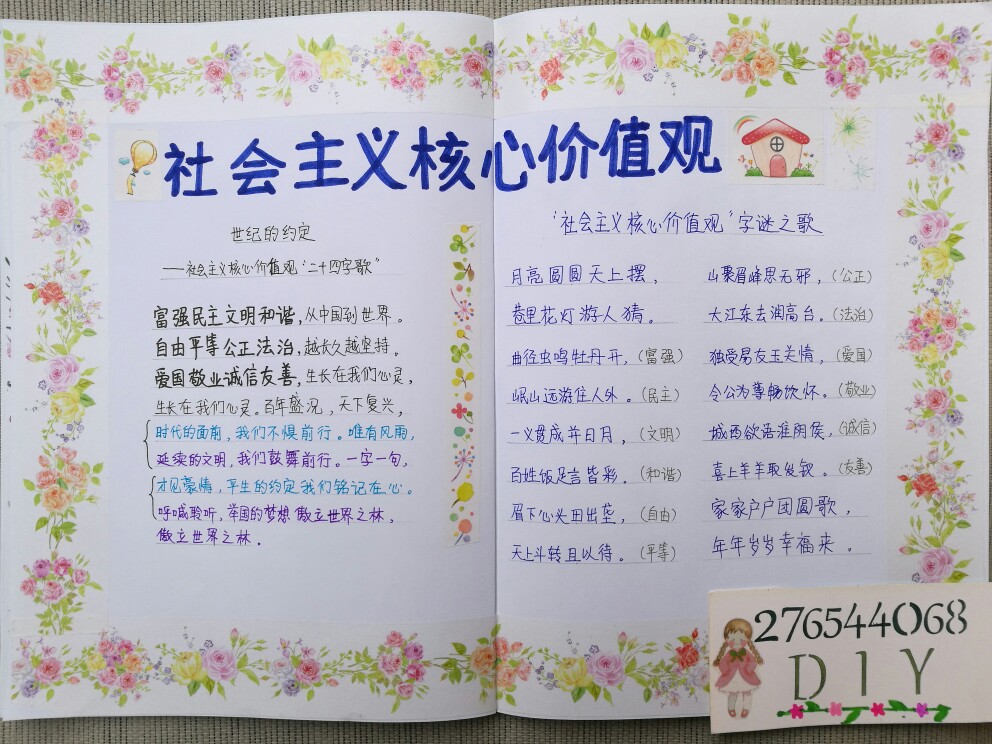 社会主义核心价值观
世纪的约定
——社会主义核心价值观“二十四字歌”
富强民主文明和谐，从中国到世界。
自由平等公正法治，越长久越坚持。
爱国敬业诚信友善，生长在我们心灵，
生长在我们心灵。百年盛况，天下复兴，
时代的面前，我们不惧前行。唯有风雨，
延续的文明，我们鼓舞前行。一字一句，
才见豪情，平生的约定我们铭记在心。
呼喊聆听，举国的梦想傲立世界之林，
傲立世界之林。
“社会主义核心价值观”字谜之歌
月亮圆圆天上摆，
巷里花灯游人猜。
曲径虫鸣牡丹开，（富强）
岷山远游住人外。（民主）
一义贯成并日月，（文明）
百姓饭足言皆彩。（和谐）
眉下心头田出垄，（自由）
天上斗转且以待。（平等）
山聚眉峰思无邪，（公正）
大江东去润高台。（法治）
独受易友玉关情，（爱国）
令公为尊畅饮怀。（敬业）
城西欲语淮阴侯，（诚信）
喜上羊羊取发钗。（友善）
家家户户团圆歌，
年年岁岁幸福来。
276544068
DIY